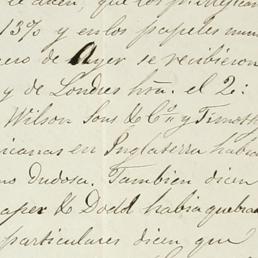 te dicen, que los principal
13% y en los papeles mun
ero de Ayer se recibieron
y de Londres hta. el 2:
Wilson Sons & Co. y Timoth
icanas en Inglaterra habia
no dudosa. Tambien dicen
aper & Dodd habia quebra
particulares dicen que